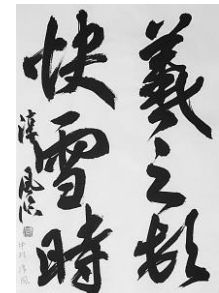 羲之頓
快雪時